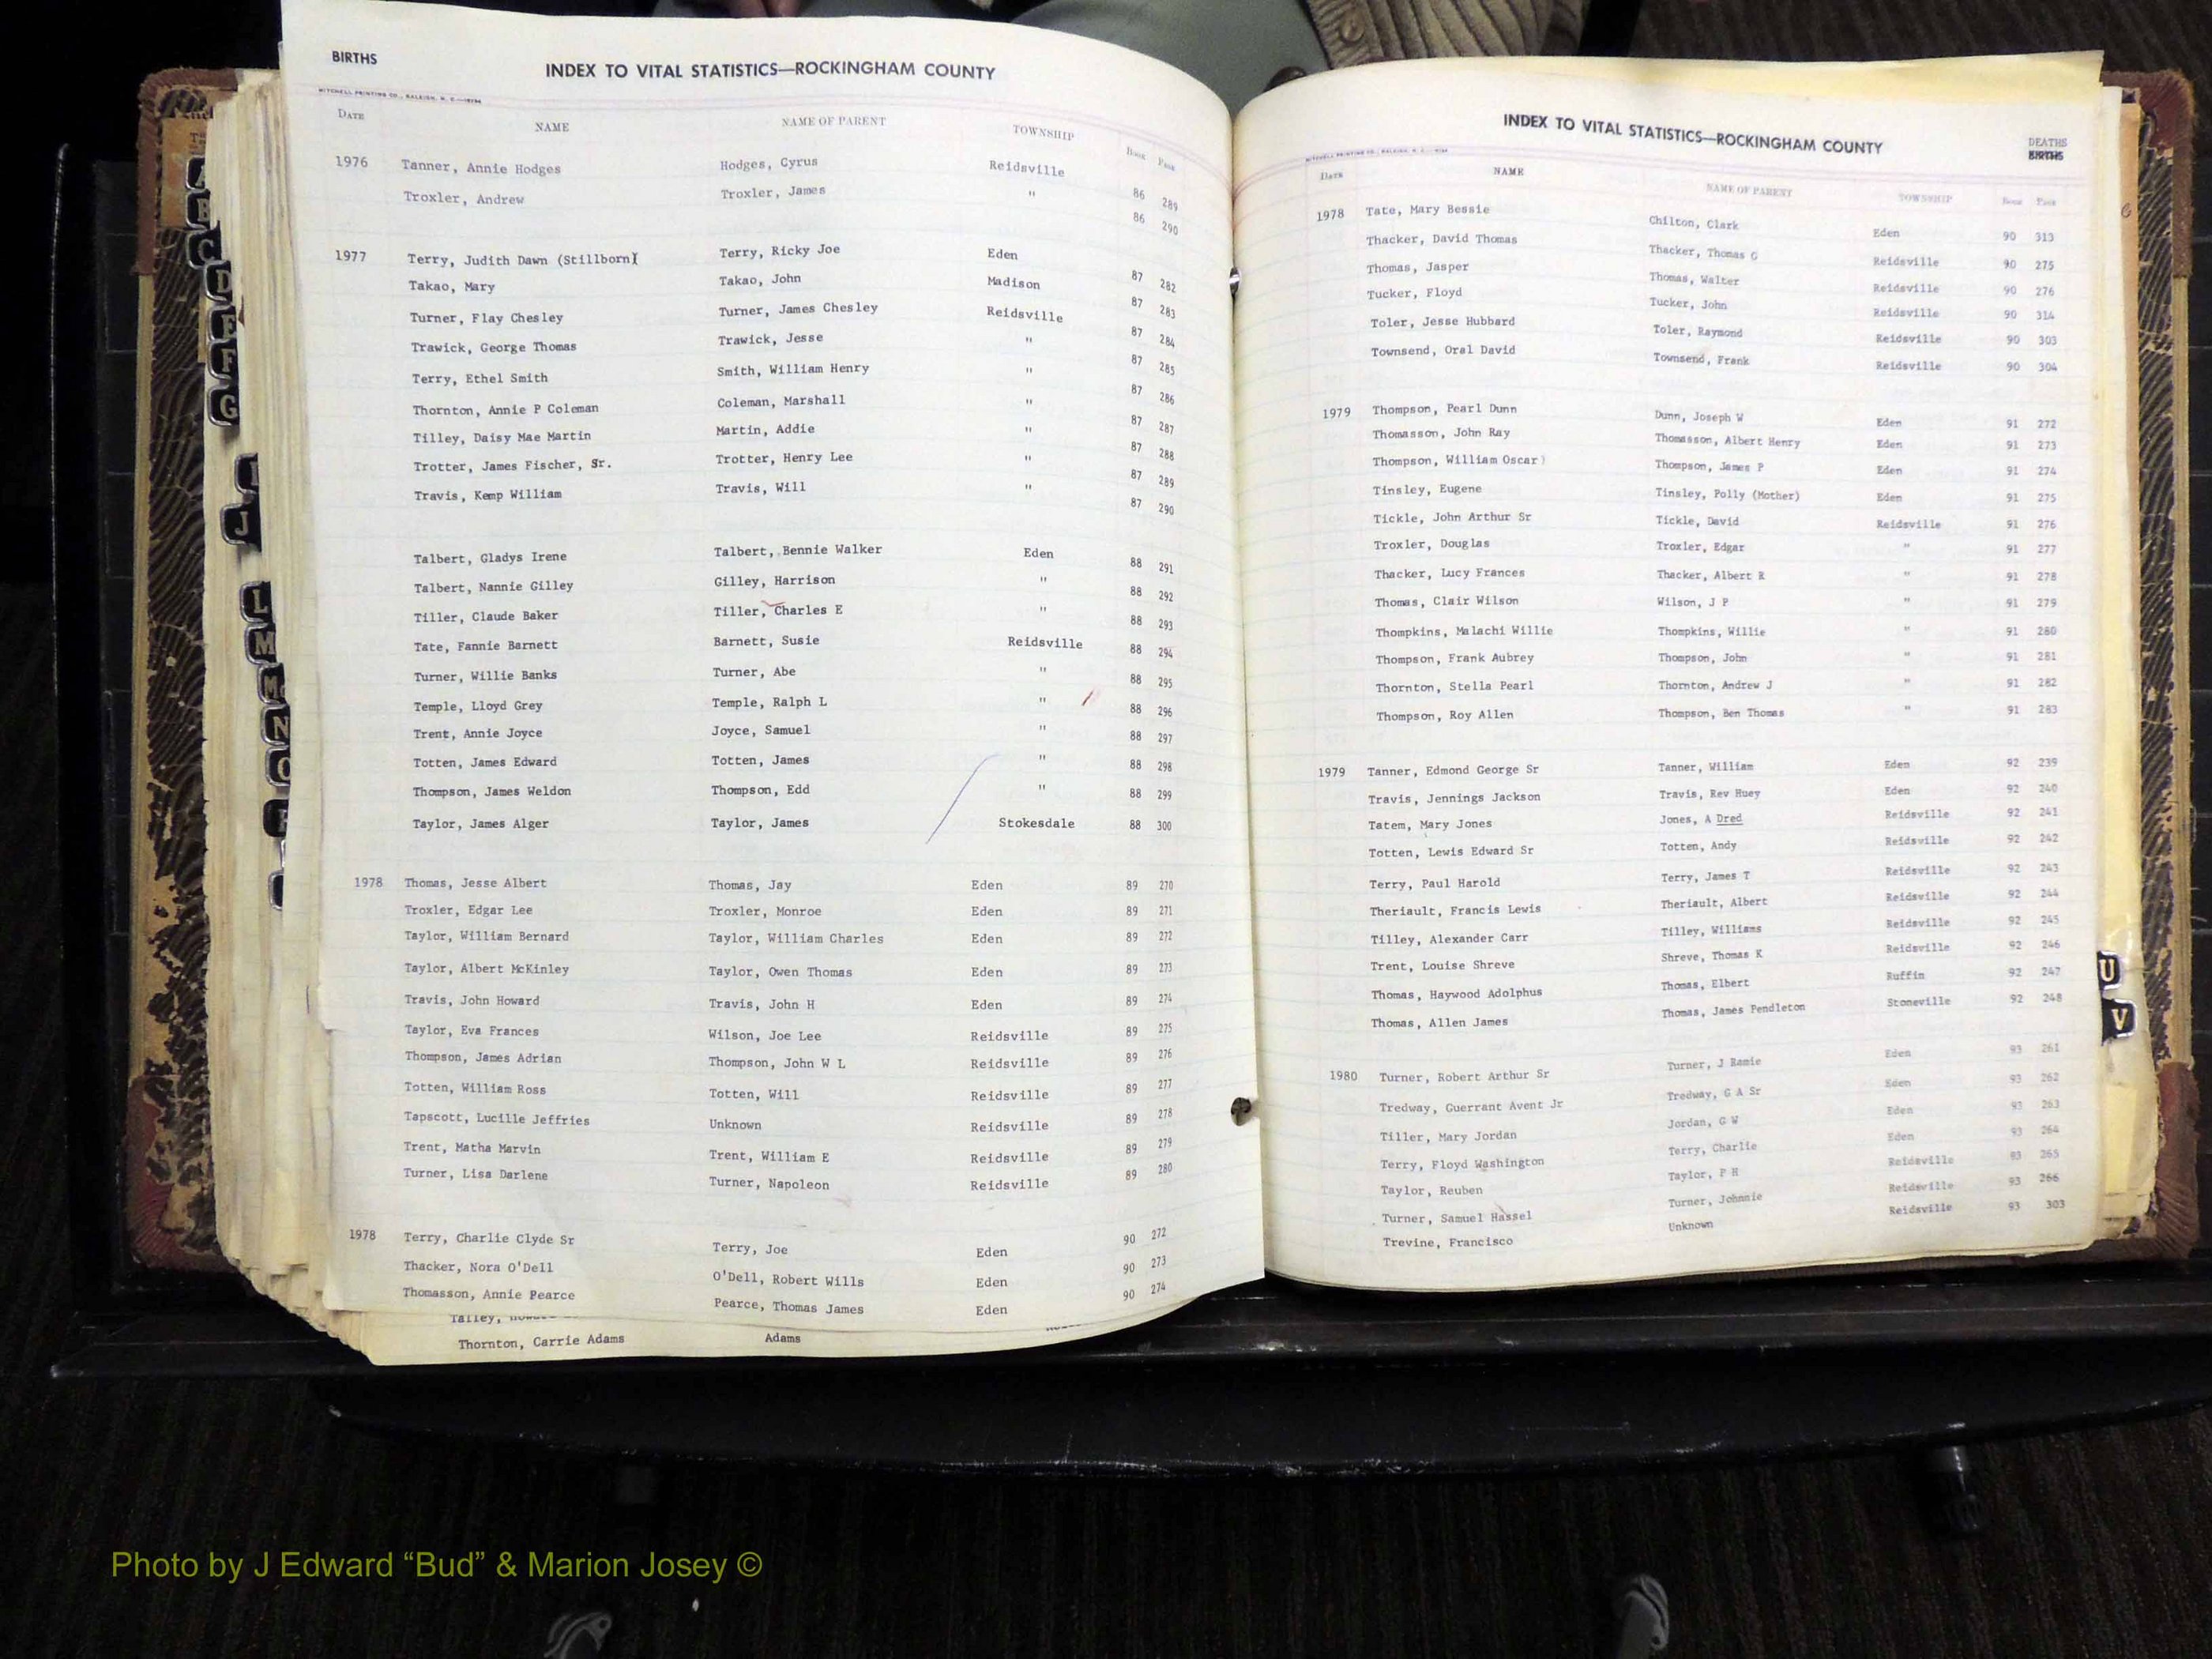 BIRTHS
INDEX TO VITAL STATISTICS—ROCKINGHAM COUNTY
MITCHELL PRINTING CO., RALEIGH, N. C.
DATE NAME NAME OF PARENT TOWNSHIP BOOK PAGE
1976 Tanner, Annie Hodges Hodges, Cyrus Reidsville 86 289
Troxler, Andrew Troxler, James " 86 290
1977 Terry, Judith Dawn (Stillborn) Terry, Ricky Joe Eden 87 282
Takao, Mary Takao, John Madison 87 283
Turner, Flay Chesley Turner, James Chesley Reidsville 87 284
Trawick, George Thomas Trawick, Jesse " 87 285
Terry, Ethel Smith Smith, William Henry " 87 286
Thornton, Annie P Coleman Coleman, Marshall " 87 287
Tilley, Daisy Mae Martin Martin, Addie " 87 288
Trotter, James Fischer, Sr. Trotter, Henry Lee " 87 289
Travis, Kemp William Travis, Will " 87 290
Talbert, Gladys Irene Talbert, Bennie Walker Eden 88 291
Talbert, Nannie Gilley Gilley, Harrison " 88 292
Tiller, Claude Baker Tiller, Charles E " 88 293
Tate, Fannie Barnett Barnett, Susie Reidsville 88 294
Turner, Willie Banks Turner, Abe " 88 295
Temple, Lloyd Grey Temple, Ralph L " 88 296
Trent, Annie Joyce Joyce, Samuel " 88 297
Totten, James Edward Totten, James " 88 298
Thompson, James Weldon Thompson, Edd " 88 299
Taylor, James Alger Taylor, James Stokesdale 88 300
1978 Thomas, Jesse Albert Thomas, Jay Eden 89 270
Troxler, Edgar Lee Troxler, Monroe Eden 89 271
Taylor, William Bernard Taylor, William Charles Eden 89 272
Taylor, Albert McKinley Taylor, Owen Thomas Eden 89 273
Travis, John Howard Travis, John H Eden 89 274
Taylor, Eva Frances Wilson, Joe Lee Reidsville 89 275
Thompson, James Adrian Thompson, John W L Reidsville 89 276
Totten, William Ross Totten, Will Reidsville 89 277
Tapscott, Lucille Jeffries Unknown Reidsville 89 278
Trent, Matha Marvin Trent, William E Reidsville 89 279
Turner, Lisa Darlene Turner, Napoleon Reidsville 89 280
1978 Terry, Charlie Clyde Sr Terry, Joe Eden 90 272
Thacker, Nora O'Dell O'Dell, Robert Wills Eden 90 273
Thomasson, Annie Pearce Pearce, Thomas James Eden 90 274
Talley,
Thornton, Carrie Adams Adams
INDEX TO VITAL STATISTICS—ROCKINGHAM COUNTY
DEATHS
BIRTHS
MITCHELL PRINTING CO., RALEIGH, N. C.
DATE NAME NAME OF PARENT TOWNSHIP BOOK PAGE
1978 Tate, Mary Bessie Chilton, Clark Eden 90 313
Thacker, David Thomas Thacker, Thomas G Reidsville 90 275
Thomas, Jasper Thomas, Walter Reidsville 90 276
Tucker, Floyd Tucker, John Reidsville 90 314
Toler, Jesse Hubbard Toler, Raymond Reidsville 90 303
Townsend, Oral David Townsend, Frank Reidsville 90 304
1979 Thompson, Pearl Dunn Dunn, Joseph W Eden 91 272
Thomasson, John Ray Thomasson, Albert Henry Eden 91 273
Thompson, William Oscar) Thompson, James P Eden 91 274
Tinsley, Eugene Tinsley, Polly (Mother) Eden 91 275
Tickle, John Arthur Sr Tickle, David Reidsville 91 276
Troxler, Douglas Troxler, Edgar " 91 277
Thacker, Lucy Frances Thacker, Albert R " 91 278
Thomas, Clair Wilson Wilson, J P " 91 279
Thompkins, Malachi Willie Thompkins, Willie " 91 280
Thompson, Frank Aubrey Thompson, John " 91 281
Thornton, Stella Pearl Thornton, Andrew J " 91 282
Thompson, Roy Allen Thompson, Ben Thomas " 91 283
1979 Tanner, Edmond George Sr Tanner, William Eden 92 239
Travis, Jennings Jackson Travis, Rev Huey Eden 92 240
Tatem, Mary Jones Jones, A Dred Reidsville 92 241
Totten, Lewis Edward Sr Totten, Andy Reidsville 92 242
Terry, Paul Harold Terry, James T Reidsville 92 243
Theriault, Francis Lewis Theriault, Albert Reidsville 92 244
Tilley, Alexander Carr Tilley, Williams Reidsville 92 245
Trent, Louise Shreve Shreve, Thomas K Reidsville 92 246
Thomas, Haywood Adolphus Thomas, Elbert Ruffin 92 247
Thomas, Allen James Thomas, James Pendleton Stoneville 92 248
1980 Turner, Robert Arthur Sr Turner, J Ramie Eden 93 261
Tredway, Guerrant Avent Jr Tredway, G A Sr Eden 93 262
Tiller, Mary Jordan Jordan, G W Eden 93 263
Terry, Floyd Washington Terry, Charlie Eden 93 264
Taylor, Reuben Taylor, P H Reidsville 93 265
Turner, Samuel Hassel Turner, Johnnie Reidsville 93 266
Trevine, Francisco Unknown Reidsville 93 303
A
B
C
D
E
F
G
I
J
L
M
M
N
O
U
V
Photo by J Edward “Bud” & Marion Josey ©